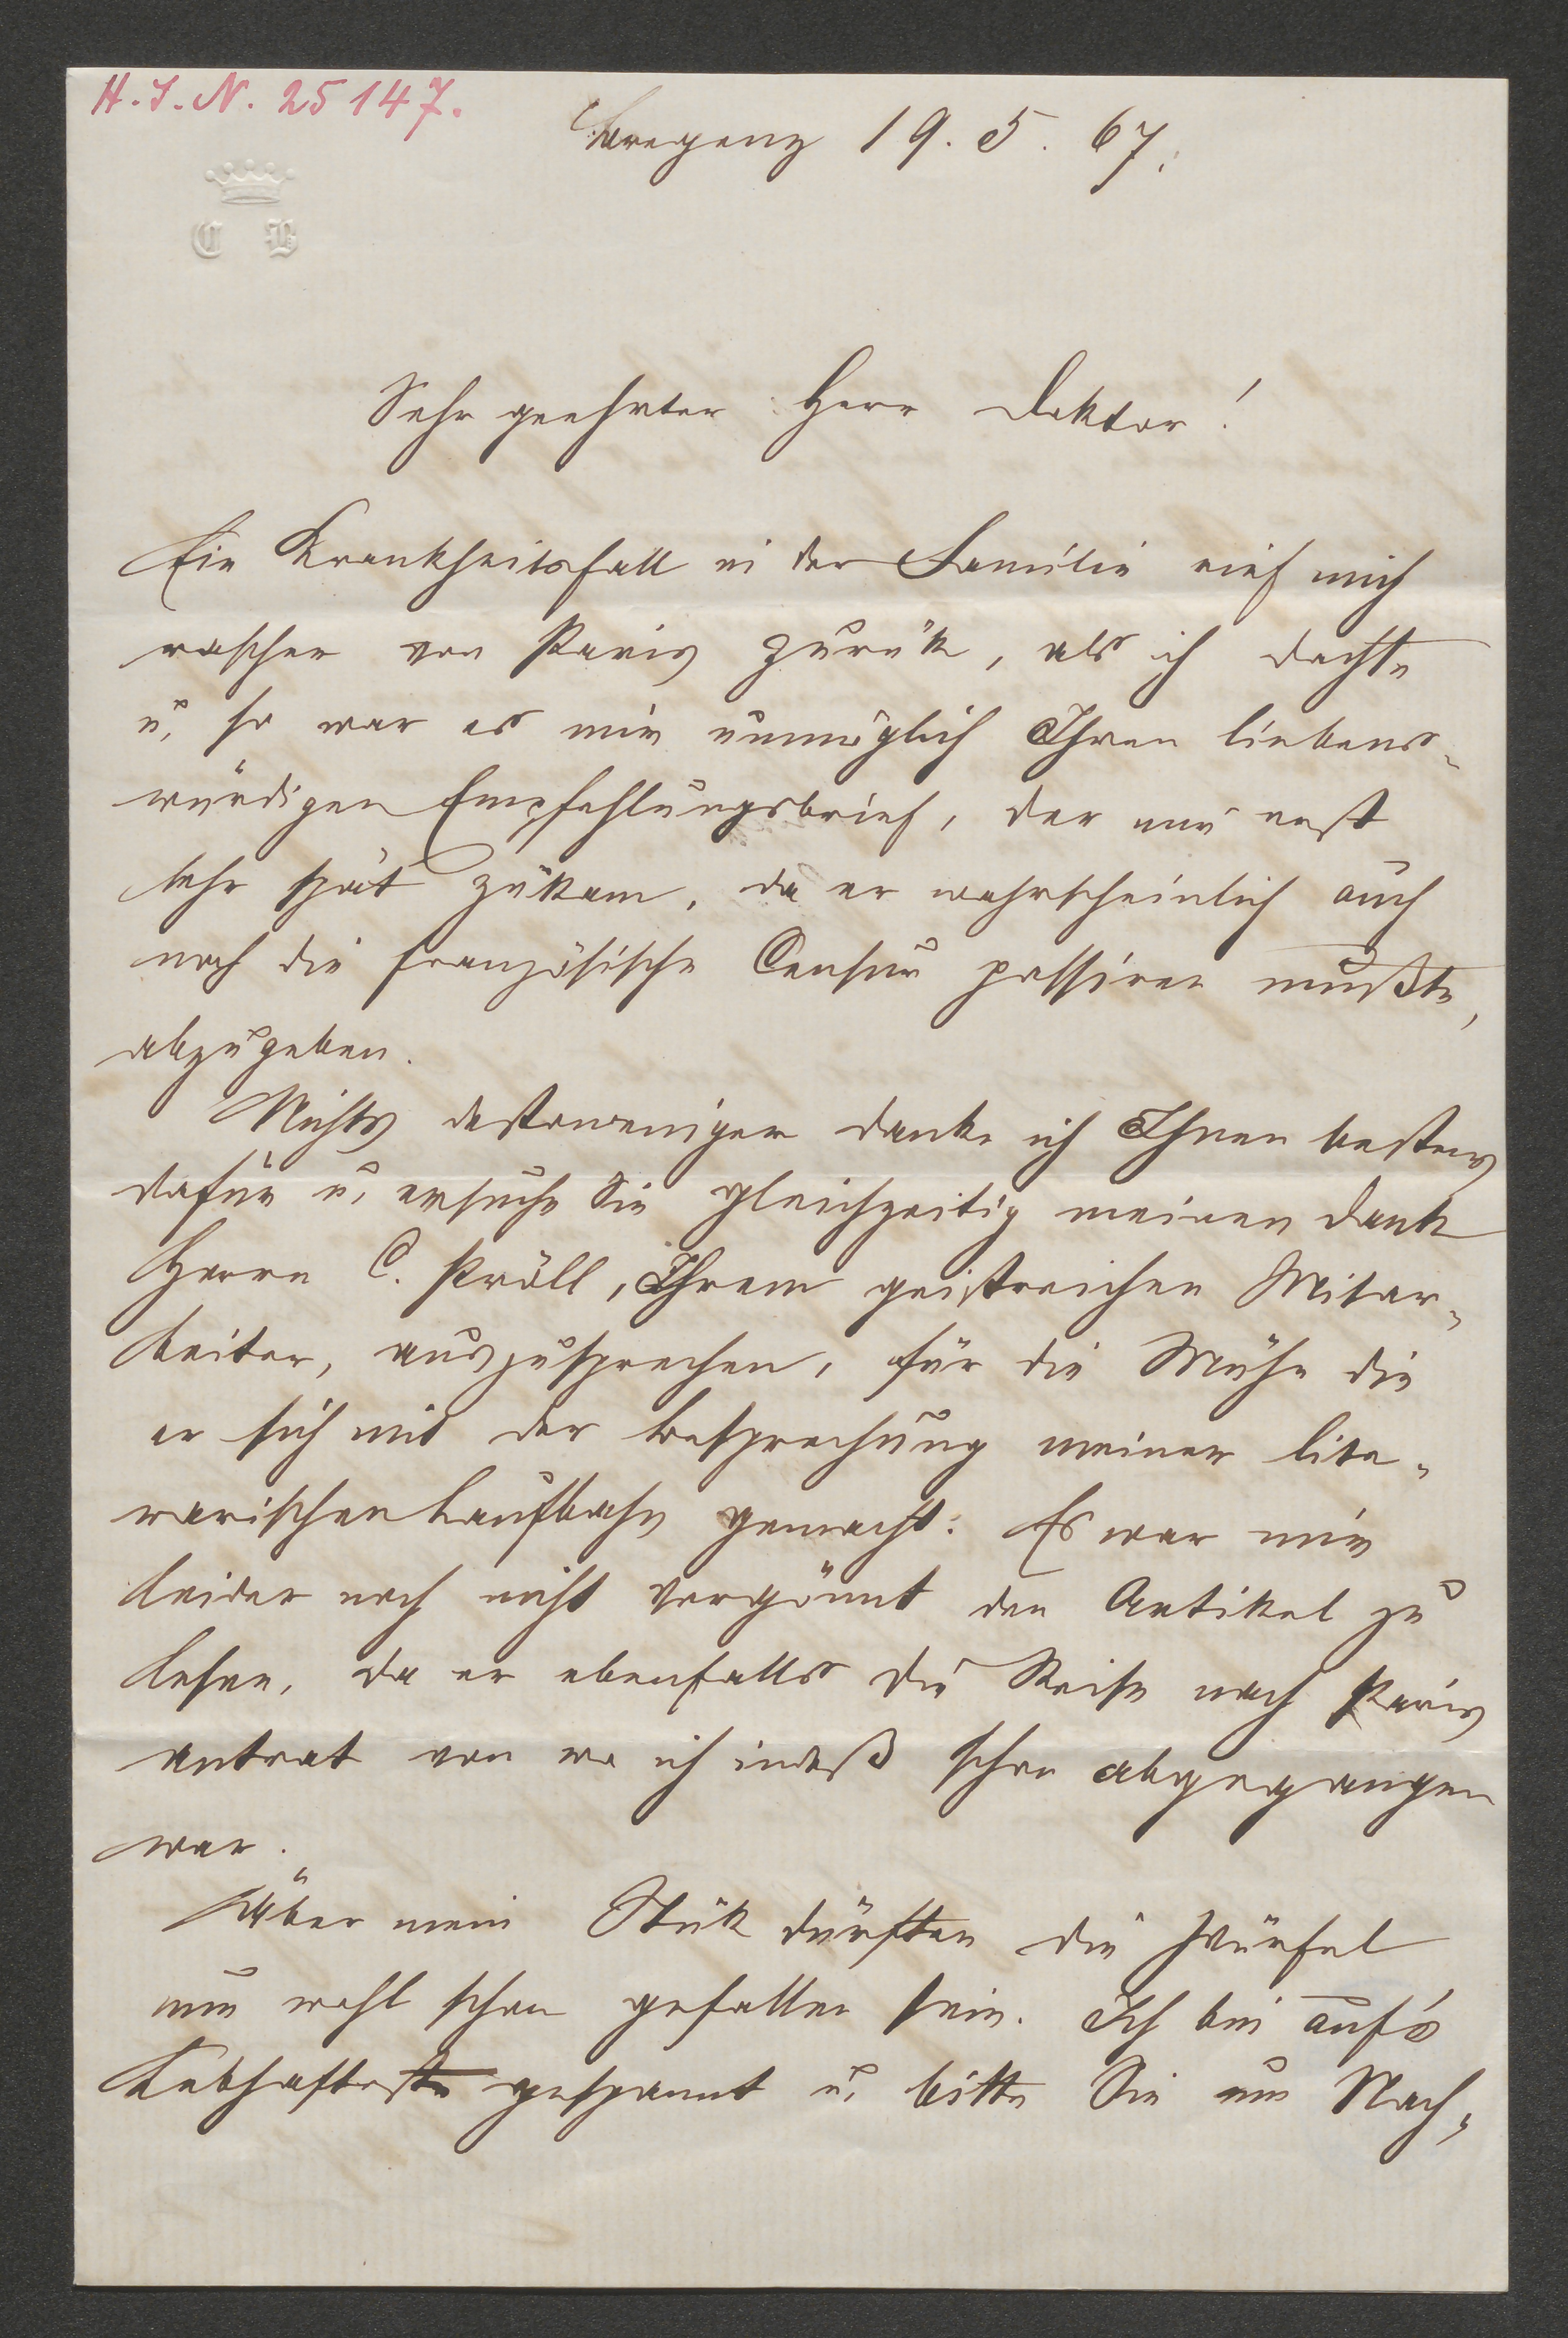 H. I. N. 25147.
Bregenz 19. 5. 67.
C B
Sehr geehrter Herr Doktor!
Ein Krankheitsfall in der Familie rief mich
rascher von Paris zurük, als ich dachte
u. so war es mir unmöglich Ihren liebens-
würdigen Empfehlungsbrief, der mir erst
sehr spät zukam, da er wahrscheinlich auch
noch die französische Censur passiren mußte,
abzugeben.
Nichts destoweniger danke ich Ihnen bestens
dafür u. ersuche Sie gleichzeitig meinen Dank
Herrn C. Pröll, Ihrem geistreichen Mitar-
beiter, auszusprechen, für die Mühe die
er sich mit der Besprechung meiner lite-
rarischen Laufbahn gemacht. Es war mir
leider noch nicht vergönnt den Artikel zu
lesen, da er ebenfalls die Reise nach Paris
antrat von wo ich indeß schon abgegangen
war.
Über mein Stük dürften die Würfel
nun wohl schon gefallen sein. Ich bin auf's
Lebhafteste gespannt u. bitte Sie um Nach-